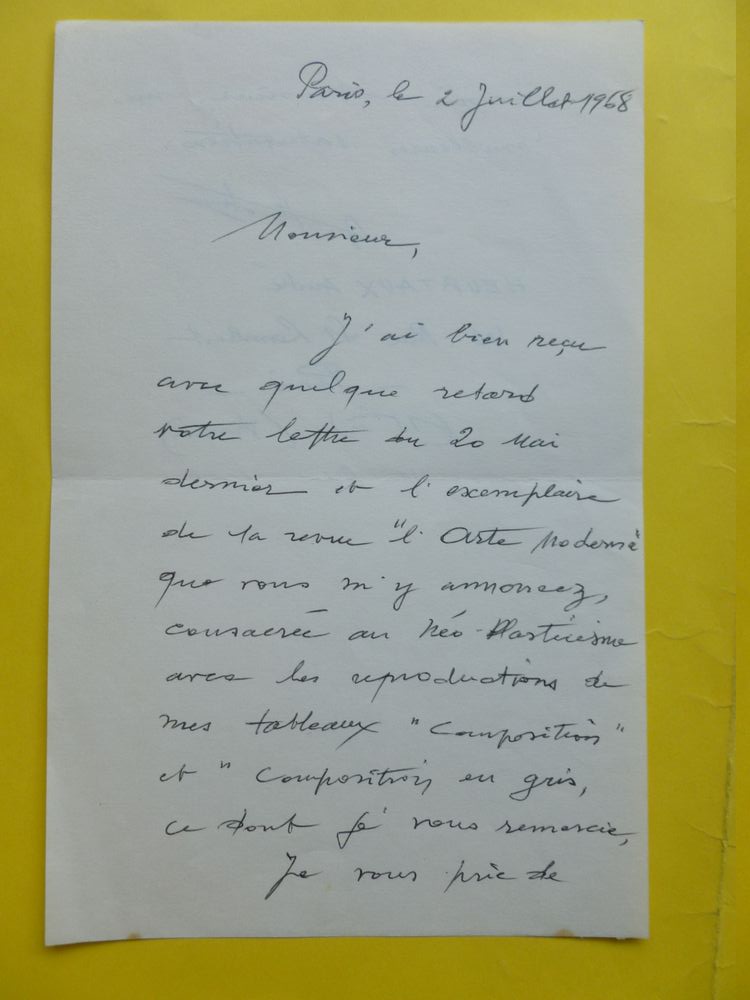 Paris, le 2 Juillet 1968
Monsieur,
J'ai bien reçu
avec quelque retard
votre lettre du 20 Mai
dernier et l'exemplaire
de la revue "l'Arte Moderna"
que vous m'y annoncez,
consacrée au Néo-Plasticisme
avec les reproductions de
mes tableaux "Composition"
et "Composition en gris,
ce dont je vous remercie,
Je vous prie de